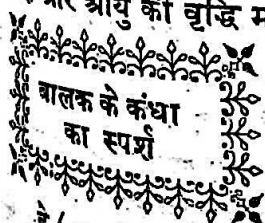 और आयु की वृद्धि
बालक के कंधा
का स्पर्श